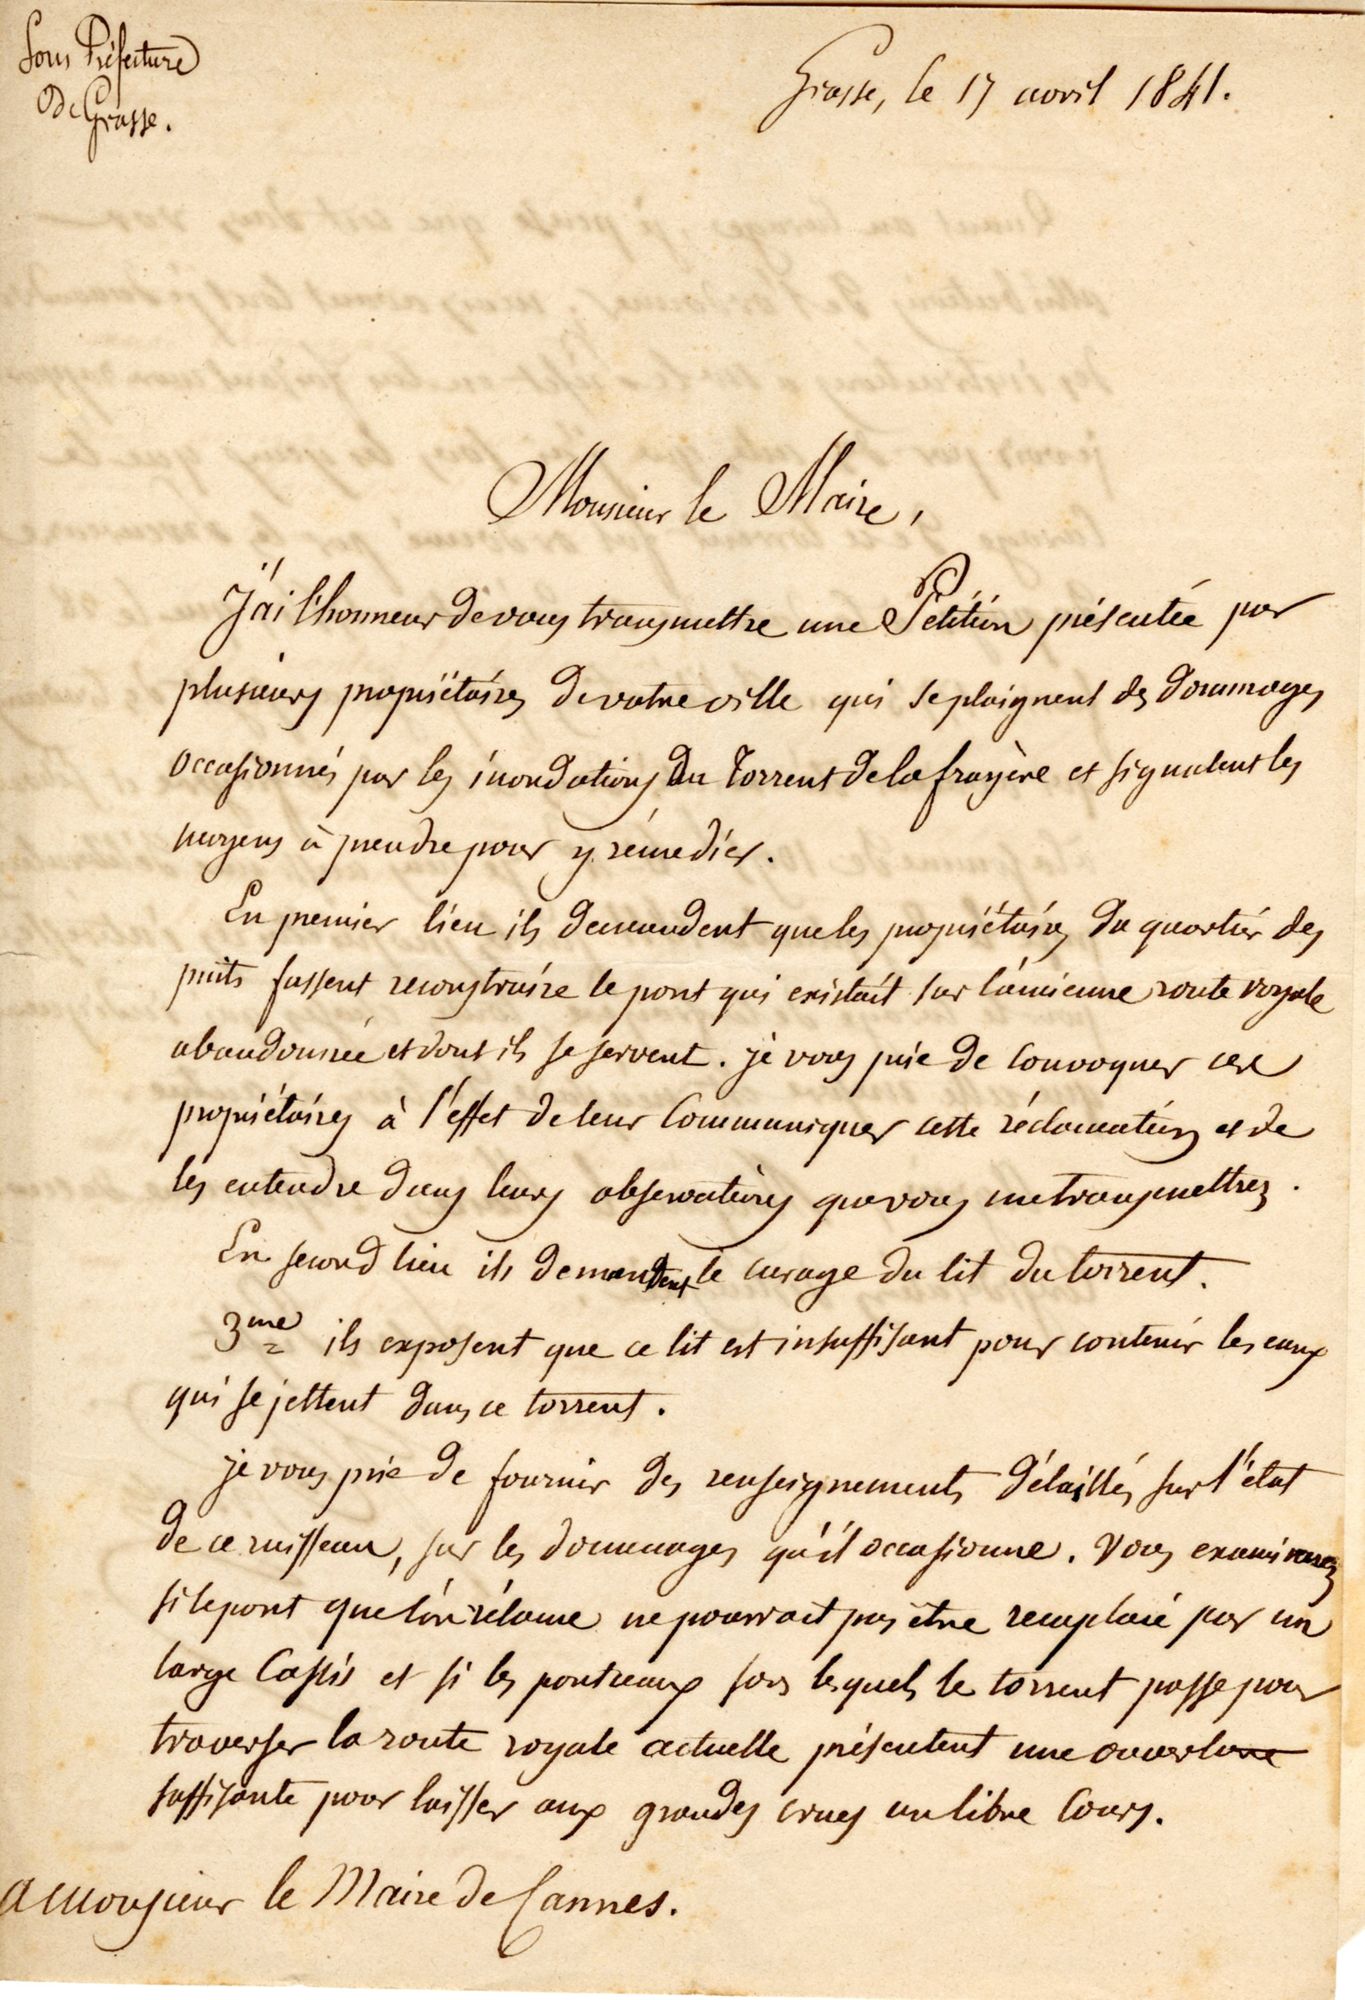 Sous Préfecture
De Grasse.
Grasse, le 17 avril 1841.
Monsieur le Maire,
J'ai l'honneur de vous transmettre une Pétition présentée par
plusieurs propriétaires de votre ville qui se plaignent des dommages
occasionnés par les inondations du Torrent de la frayère et signalent les
moyens à prendre pour y rémédier.
En premier lieu ils demandent que les propriétaires du quartier des
puits fassent reconstruire le pont qui existait sur l'ancienne route royale
abandonnée et dont ils se servent. je vous prie de convoquer ces
propriétaires à l'effet de leur communiquer cette réclamation et de
les entendre dans leurs observations que vous me transmettrez.
En second lieu ils demandent le curage du lit du torrent.
3me ils exposent que ce lit est insuffisant pour contenir les eaux
qui se jettent dans ce torrent.
je vous prie de fournir des renseignements détaillés sur l'état
de ce ruisseau, sur les dommages qu'il occasionne. Vous examinerez
si le pont que l'on réclame ne pourrait pas être remplacé par un
large Cassis et si les pontceaux sous lesquels le torrent passe pour
traverser la route royale actuelle présentent une ouverture
suffisante pour laisser aux grandes crues un libre Cours.
A Monsieur le Maire de Cannes.